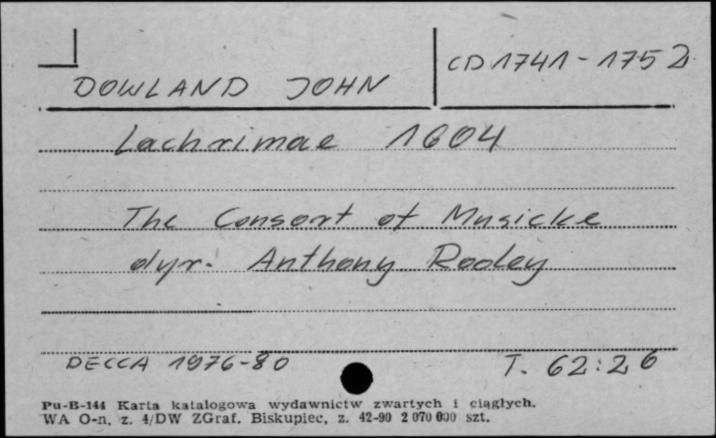 DOWLAND JOHN CD 1741-1752
Lachrimae 1604
The Consort of Musicke
dyr. Anthony Rooley
DECCA 1976-80 T. 62:26
Pu-B-144 Karta katalogowa wydawnictw zwartych i ciągłych.
WA O-n, z. 4/DW ZGraf. Biskupiec, z. 42-90 2 070 000 szt.